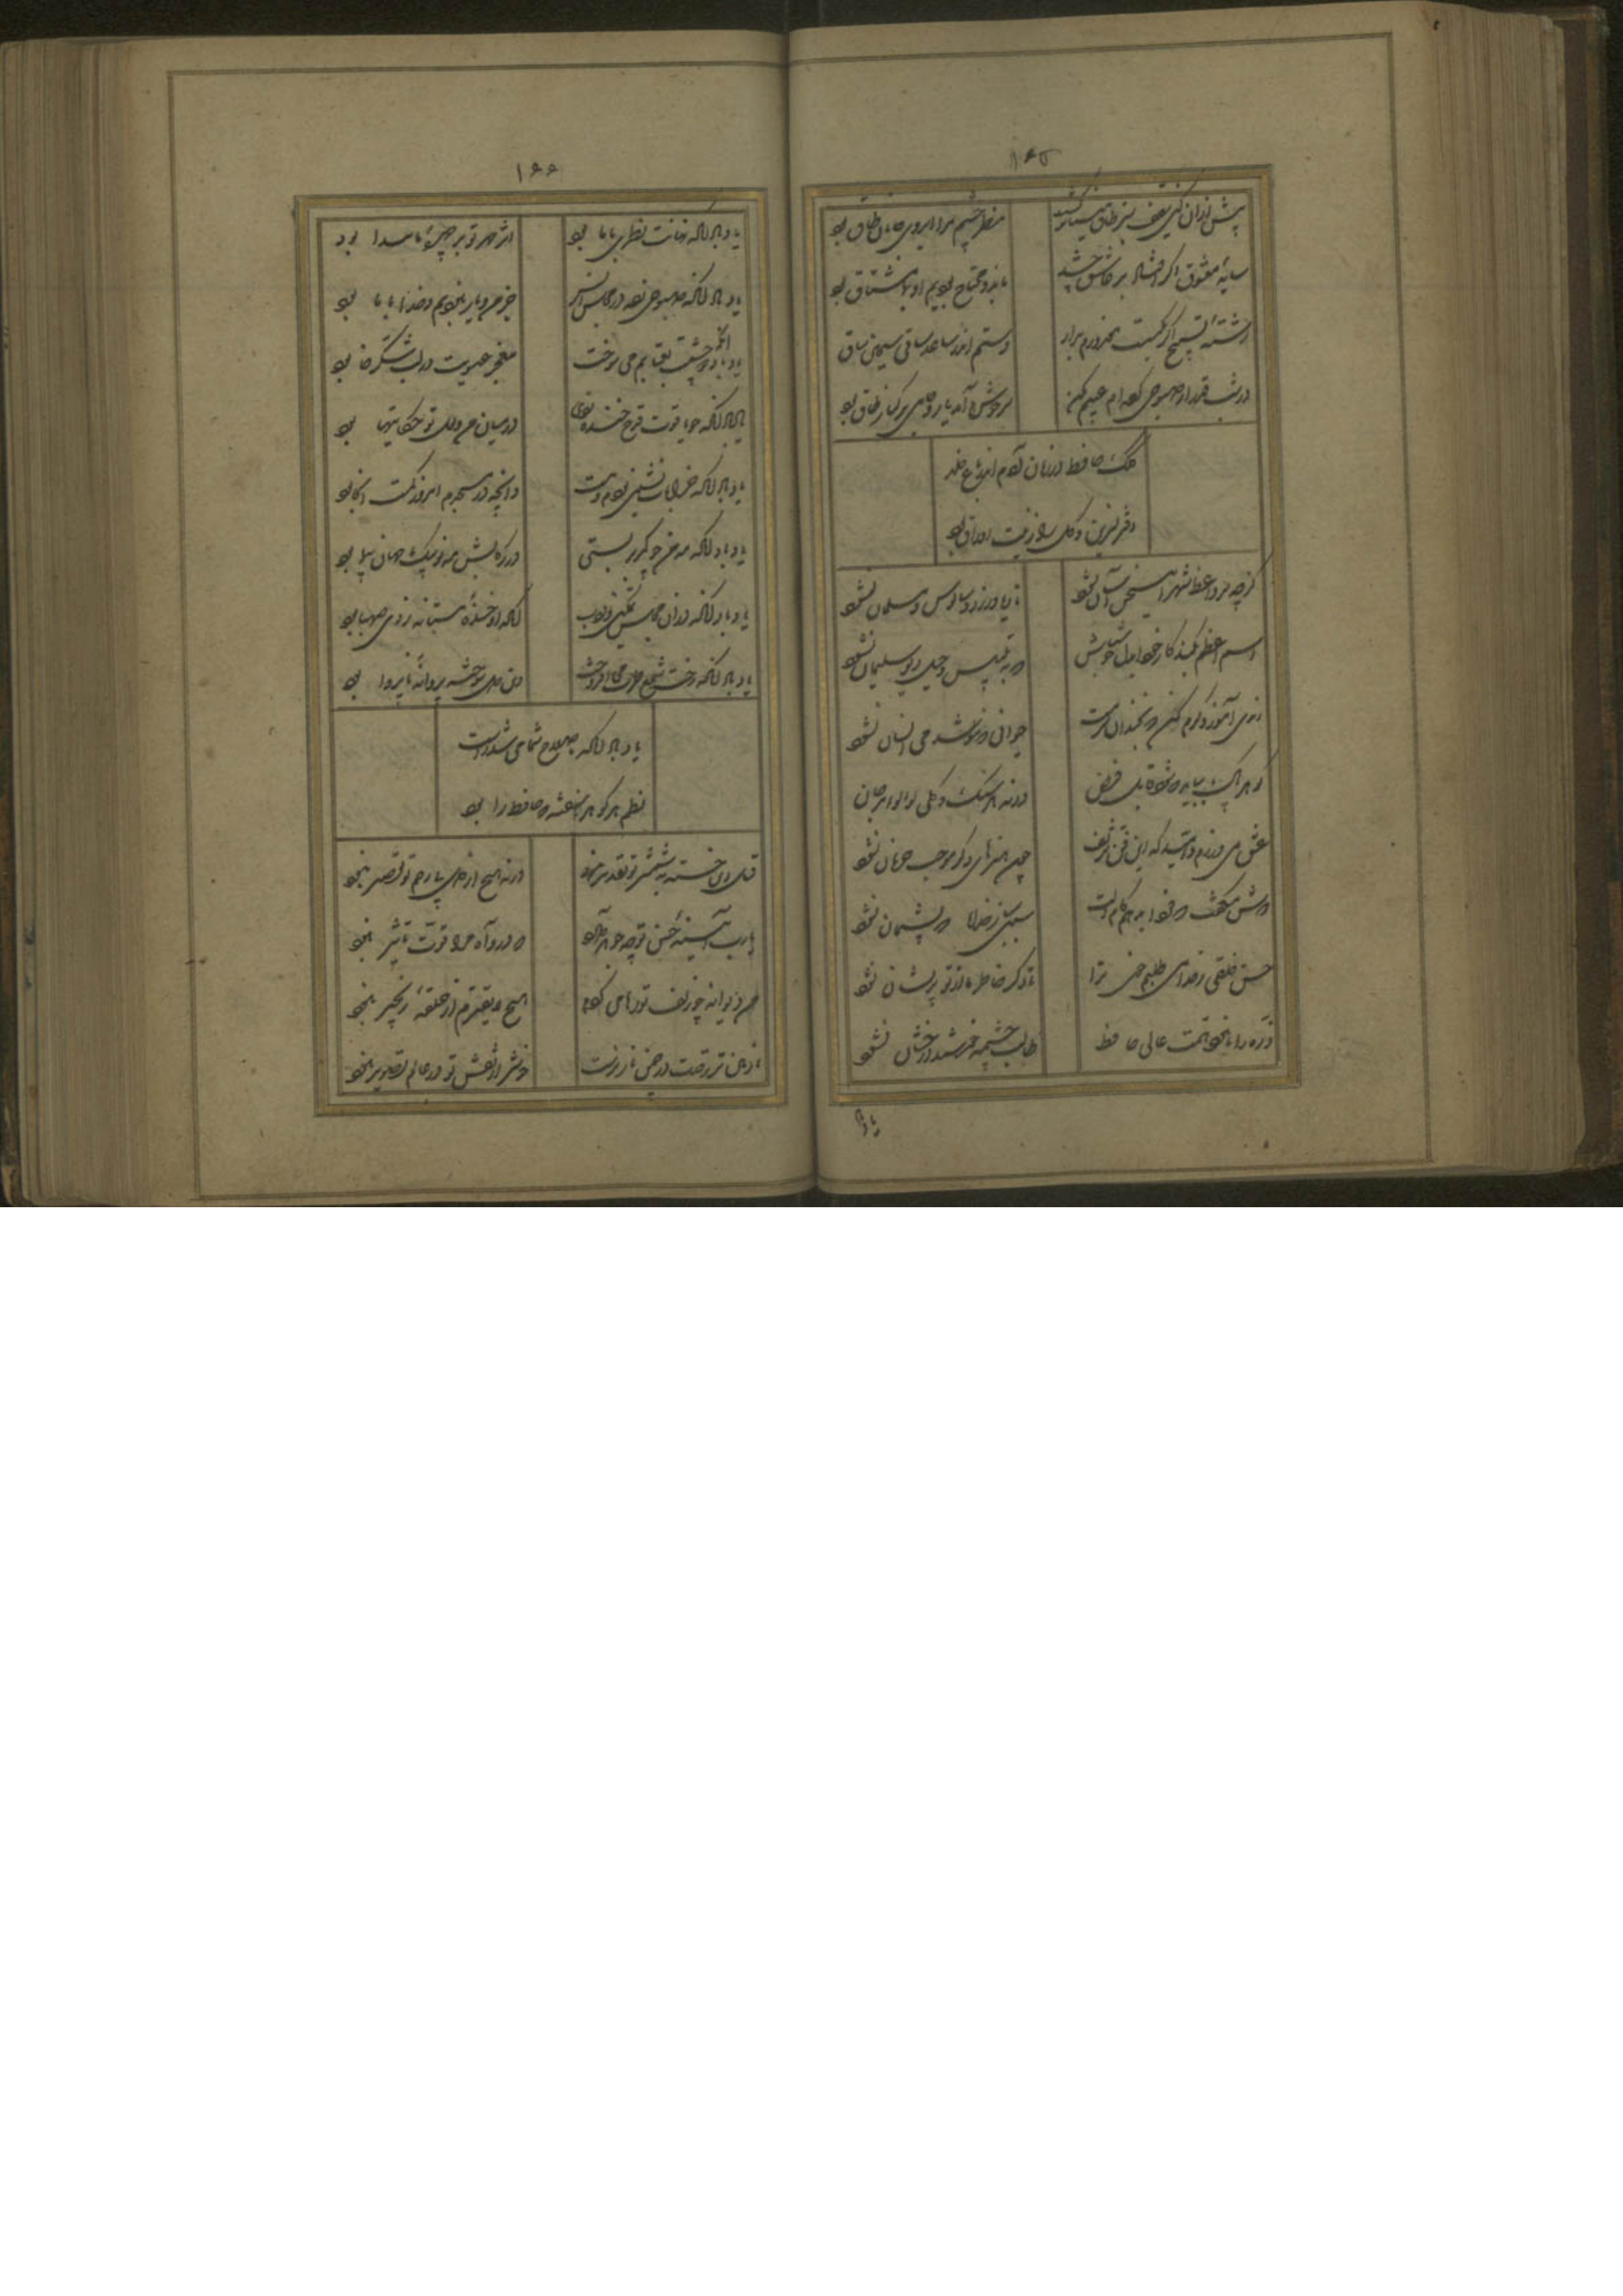 ۱۶۵
پیش ازین کین سقف سبز و طاق مینا برکشید
منظر چشم مرا ابروی جانان طاق بود
سایه معشوق اگر افتاد بر عاشق چه شد
ما بدو محتاج بودیم او بما مشتاق بود
رشته تسبیح اگر بگسست معذورم بدار
دستم اندر ساعد ساقی سیمین ساق بود
در شب قدر ار صبوحی کرده‌ام عیبم مکن
سرخوش آمد یار و جامی بر کنار طاق بود
شعر حافظ در زمان آدم اندر باغ خلد
دفتر نسرین و گل را زینت اوراق بود
گرچه بر واعظ شهر این سخن آسان نشود
تا ریا ورزد و سالوس مسلمان نشود
اسم اعظم بکند کار خود ای دل خوش باش
که به تلبیس و حیل دیو سلیمان نشود
رندی آموز و کرم کن که نچندان هنرست
حیوانی که ننوشد می و انسان نشود
گوهر پاک بباید که شود قابل فیض
ورنه هر سنگ و گلی لولو و مرجان نشود
عشق می ورزم و امید که این فن شریف
چون هنرهای دگر موجب حرمان نشود
دوش میگفت که فردا بدهم کام دلت
سببی ساز خدایا که پشیمان نشود
حسن خلقی ز خدا می طلبم حسن ترا
تا دگر خاطر ما از تو پریشان نشود
ذره را تا نبود همت عالی حافظ
طالب چشمه خورشید درخشان نشود
یاد باد
۱۶۶
یاد باد آنکه نهانت نظری با ما بود
اثر مهر تو بر چهره ما پیدا بود
یاد باد آنکه صبوحی زده در مجلس انس
جز من و یار نبودیم و خدا با ما بود
یاد باد آنکه چو چشمت بعتابم می سوخت
معجز عیسویت در لب شکرخا بود
یاد باد آنکه چو یاقوت قدح خنده زدی
در میان من و لعل تو حکایتها بود
یاد باد آنکه خرابات نشین بودم و مست
وانچه در مسجدم امروز کمست آنجا بود
یاد باد آنکه مه من چو کمر بربستی
در رکابش مه نو پیک جهان پیما بود
یاد باد آنکه در آن مجلس
آنکه او خنده مستانه زدی صهبا بود
یاد باد آنکه رخت شمع طرب می افروخت
وین دل سوخته پروانه ناپروا بود
یاد باد آنکه باصلاح شما می شد راست
نظم هر گوهر ناسفته که حافظ را بود
قتل این خسته بشمشیر تو تقدیر نبود
ورنه هیچ از دل بی رحم تو تقصیر نبود
یا رب آیینه حسن تو چه جوهر دارد
که درو آه مرا قوت تاثیر نبود
من دیوانه چو زلف تو رها می کردم
هیچ لایقترم از حلقه زنجیر نبود
نازنین‌تر ز قدت در چمن ناز نرست
خوشتر از نقش تو در عالم تصویر نبود